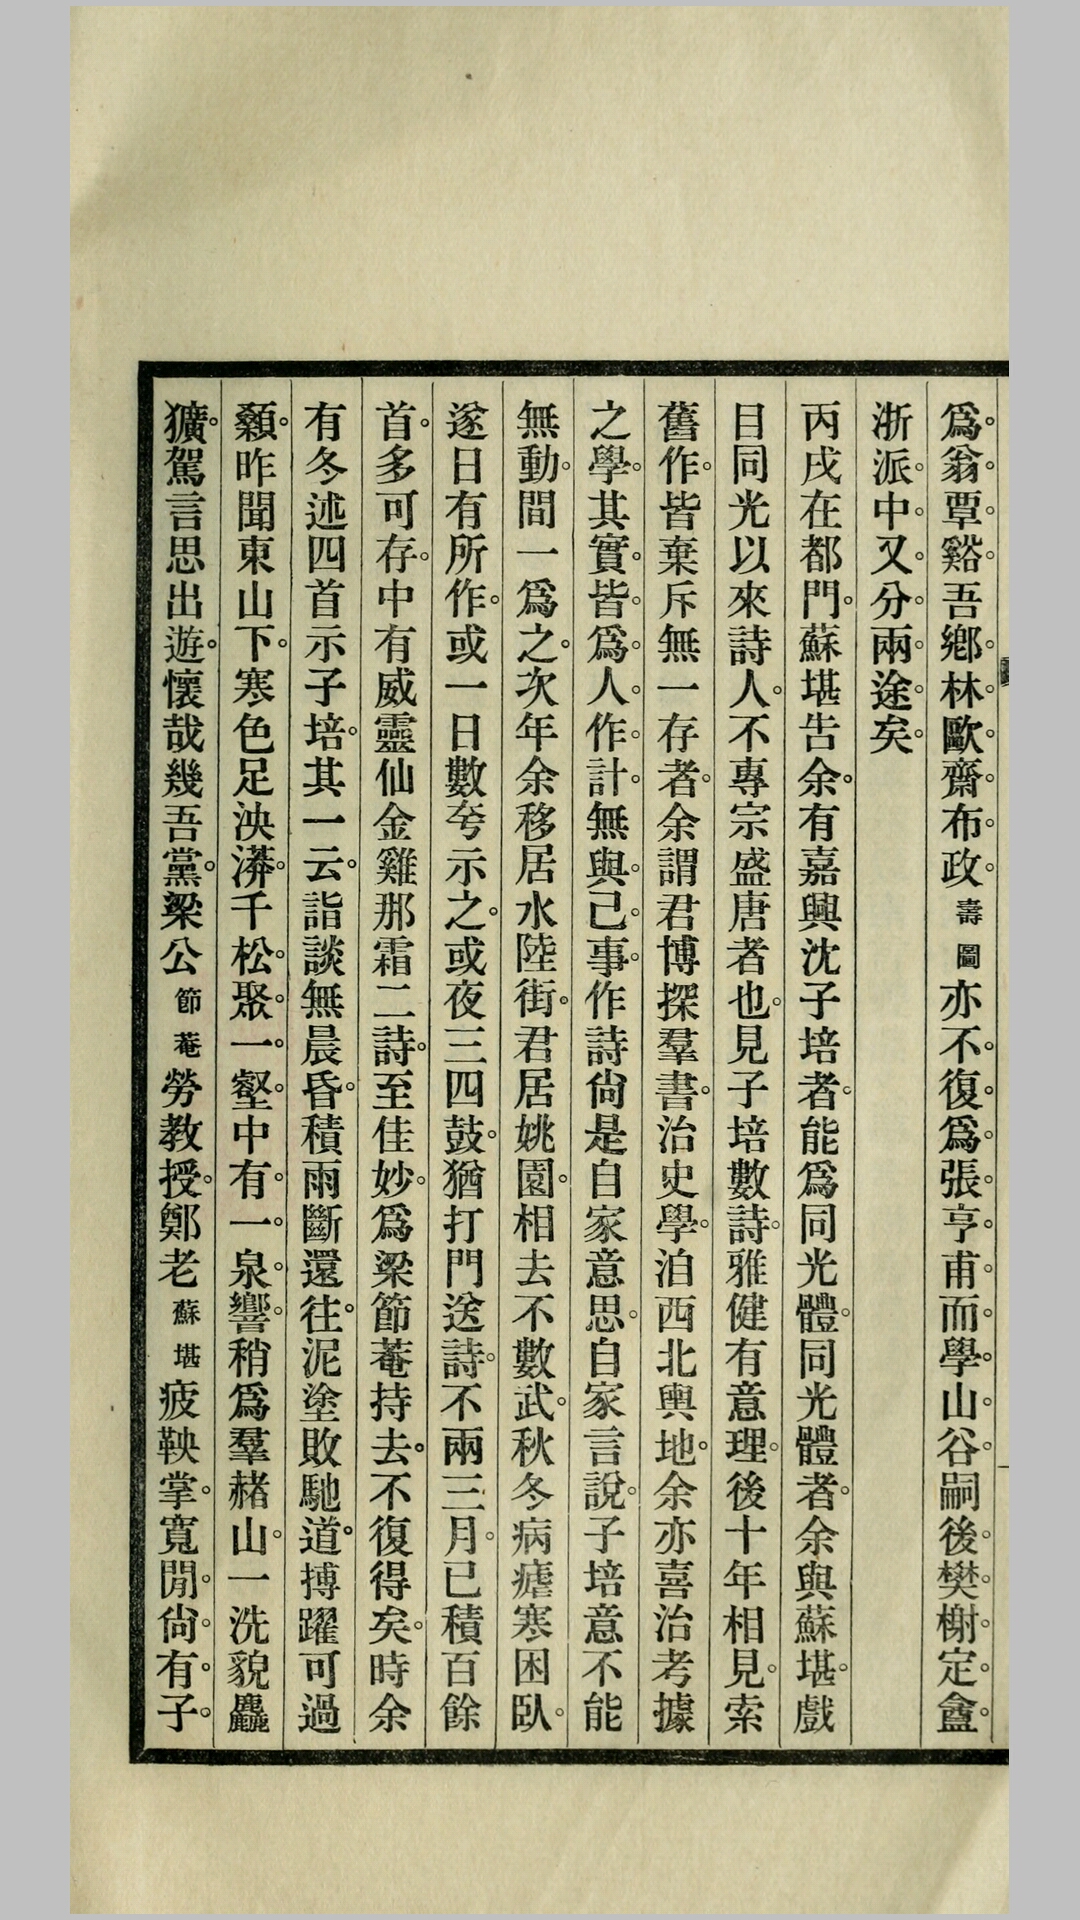 爲翁覃谿吾鄉林歐齋布政壽圖亦不復爲張亨甫而學山谷嗣後樊榭定盦
浙派中又分兩途矣
丙戌在都門蘇堪告余有嘉興沈子培者能爲同光體同光體者余與蘇堪戲
目同光以來詩人不專宗盛唐者也見子培數詩雅健有意理後十年相見索
舊作皆棄斥無一存者余謂君博探羣書治史學洎西北輿地余亦喜治考據
之學其實皆爲人作計無與己事作詩尙是自家意思自家言說子培意不能
無動間一爲之次年余移居水陸街君居姚園相去不數武秋冬病瘧寒困臥
遂日有所作或一日數㪯示之或夜三四鼓猶打門送詩不兩三月已積百餘
首多可存中有威靈仙金雞那霜二詩至佳妙爲梁節菴持去不復得矣時余
有冬述四首示子培其一云詣談無晨昏積雨斷還往泥塗敗馳道搏躍可過
顙昨聞東山下寒色足泱漭千松聚一壑中有一泉響稍爲羣赭山一洗貌麤
獷駕言思出遊懷哉幾吾黨梁公節菴勞教授鄭老蘇堪疲鞅掌寬閒尙有子